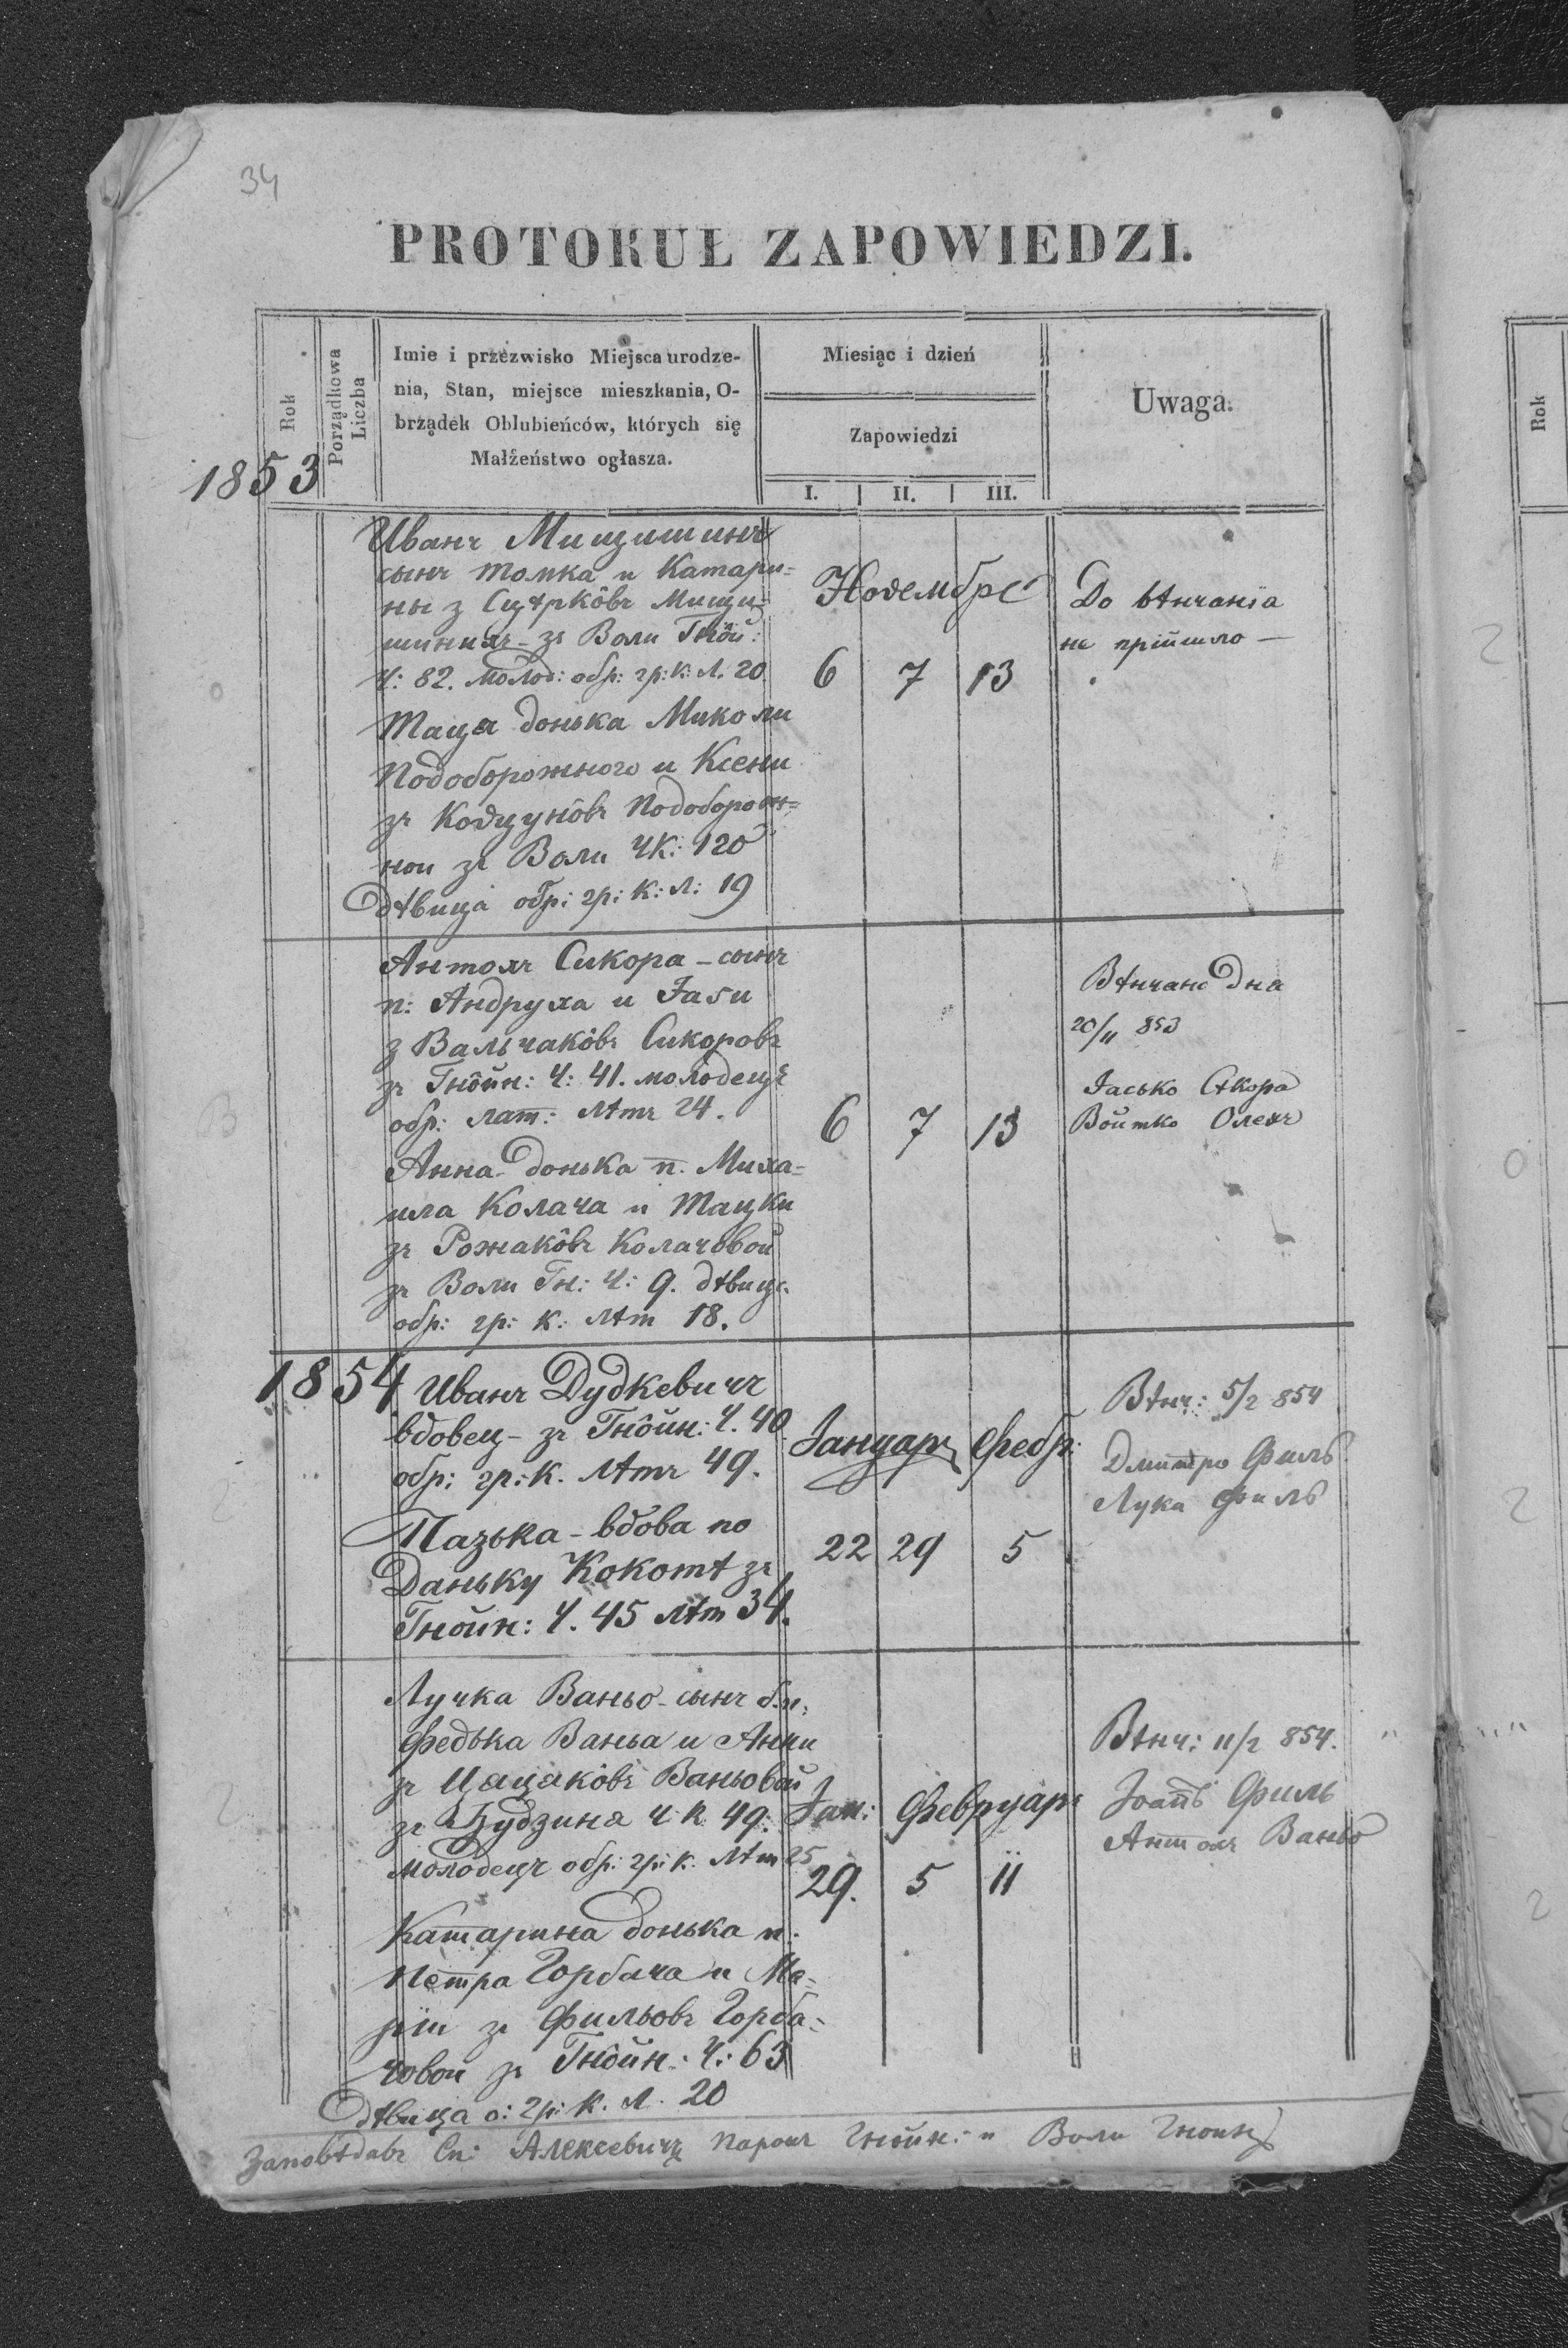 34
PROTOKUŁ ZAPOWIEDZI.
Rok
Porządkowa Liczba
Imie i przezwisko Miejsca urodze-
nia, Stan, miejsce mieszkania, O-
brządek Oblubieńców, których się
Małżeństwo ogłasza.
Miesiąc i dzień
Zapowiedzi
I. II. III.
Uwaga.
1853
Иванъ Мищишинъ
сынъ Томка и Катари=
ны з Сцѣркôвъ Мищи=
шинихъ - зъ Воли Гнôй:
Ч: 82. молод: обр: гр: к: Л. 20
Таця донька Миколи
Подоборожного и Ксени
зъ Коцунôвъ Подоборож=
нои зъ Воли ЧК: 120
дѣвица обр: гр: к: л: 19
Новембрь
6 7 13
До вѣнчанїа
не прійшло —
Антонъ Сикора - сынъ
п: Андруха и Іаги
з Вальчакôвъ Сикоровъ
зъ Гнôйн: Ч: 41. молодецъ
обр: лат: лѣтъ 24.
Анна донька п. Миха=
ила Колача и Тацки
зъ Рожакôвъ Колачовой
зъ Воли Гн: Ч: 9. дѣвиц.
обр: гр: к: лѣт 18.
6 7 13
Вѣнчано дна
20/11 853
Іасько Сѣкора
Войтко Олехъ
1854
Иванъ Дудкевичъ
вдовец - зъ Гнôйн: Ч. 40
обр: гр: к. лѣтъ 49.
Пазька - вдова по
Даньку Кокотѣ зъ
Гнойн: Ч. 45 лѣт 34.
Іануаръ Фебр:
22 29 5
Вѣнч: 5/2 854
Дмитро Филь
Лука Филь
Лучка Ваньо - сынъ б.п.
Федька Ваньа и Анни
зъ Цацакôвъ Ваньовой
зъ Будзина ч к 49.
молодецъ обр: гр: к. лѣт 25
Катарина донька п.
Петра Горбача и Ма=
рїи зъ Фильовъ Горба=
човой зъ Гнôйн: Ч: 63
дѣвица о: гр: к. л. 20
Іан: Февруаръ
29. 5 11
Вѣнч: 11/2 854.
Іоаннъ Филь
Антонъ Ваньо
Заповѣдавъ Алексевичъ Парохъ Гнôйн: и Воли Гноин
Rok